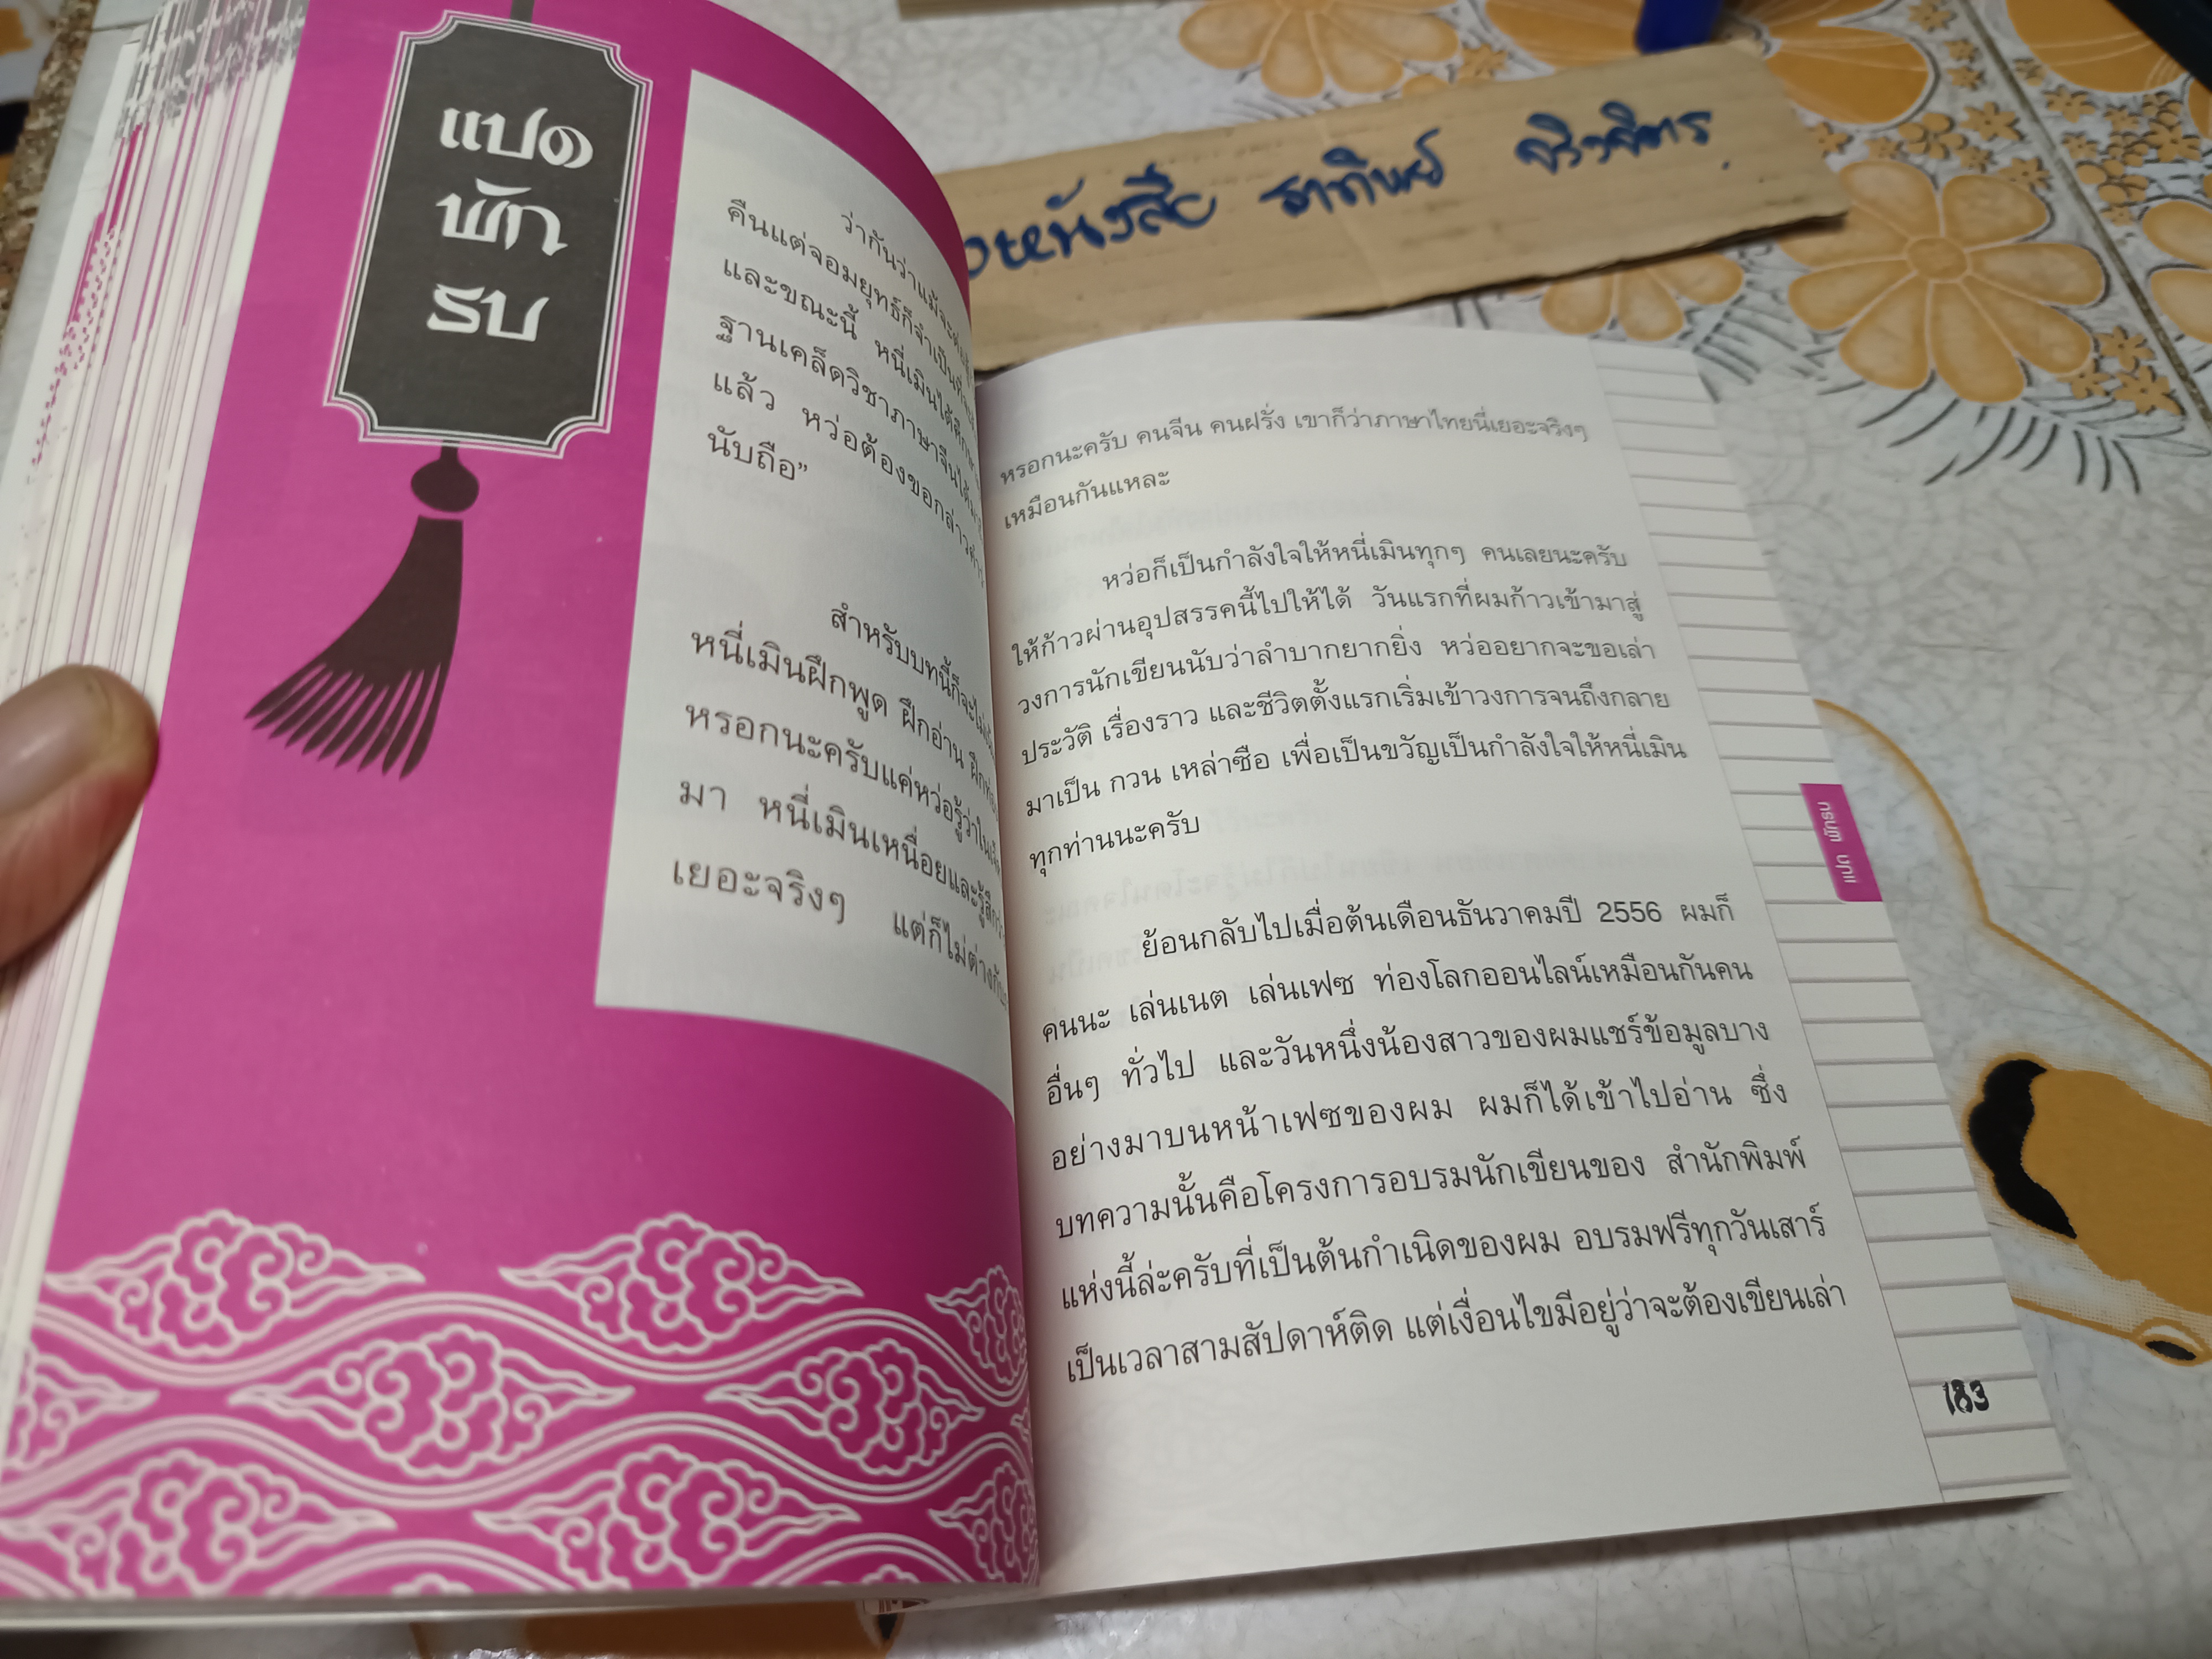 แปด
พัก
รบ
ว่ากันว่าแม้จะ
คืนแต่จอมยุทธ์ก็จำเป็น
และขณะนี้ หนี่เมินได้
ฐานเคล็ดวิชาภาษาจีนได้
แล้ว หว่อต้องขอกล่าว
นับถือ”
สำหรับบทนี้ก็จะไม่
หนี่เมินฝึกพูด ฝึกอ่าน ฝึก
หรอกนะครับแค่หว่อรู้ว่า
มา หนี่เมินเหนื่อยและรู้สึก
เยอะจริงๆ แต่ก็ไม่ต่างกัน
หนังสือ ธาทิพย์ จิรวจิตร
หรอกนะครับ คนจีน คนฝรั่ง เขาก็ว่าภาษาไทยนี่เยอะจริงๆ
เหมือนกันแหละ
หว่อก็เป็นกำลังใจให้หนี่เมินทุกๆ คนเลยนะครับ
ให้ก้าวผ่านอุปสรรคนี้ไปให้ได้ วันแรกที่ผมก้าวเข้ามาสู่
วงการนักเขียนนับว่าลำบากยากยิ่ง หว่ออยากจะขอเล่า
ประวัติ เรื่องราว และชีวิตตั้งแรกเริ่มเข้าวงการจนถึงกลาย
มาเป็น กวน เหล่าซือ เพื่อเป็นขวัญเป็นกำลังใจให้หนี่เมิน
ทุกท่านนะครับ
ย้อนกลับไปเมื่อต้นเดือนธันวาคมปี 2556 ผมก็
คนนะ เล่นเนต เล่นเฟซ ท่องโลกออนไลน์เหมือนกันคน
อื่นๆ ทั่วไป และวันหนึ่งน้องสาวของผมแชร์ข้อมูลบาง
อย่างมาบนหน้าเฟซของผม ผมก็ได้เข้าไปอ่าน ซึ่ง
บทความนั้นคือโครงการอบรมนักเขียนของ สำนักพิมพ์
แห่งนี้ล่ะครับที่เป็นต้นกำเนิดของผม อบรมฟรีทุกวันเสาร์
เป็นเวลาสามสัปดาห์ติด แต่เงื่อนไขมีอยู่ว่าจะต้องเขียนเล่า
แปด พักรบ
183